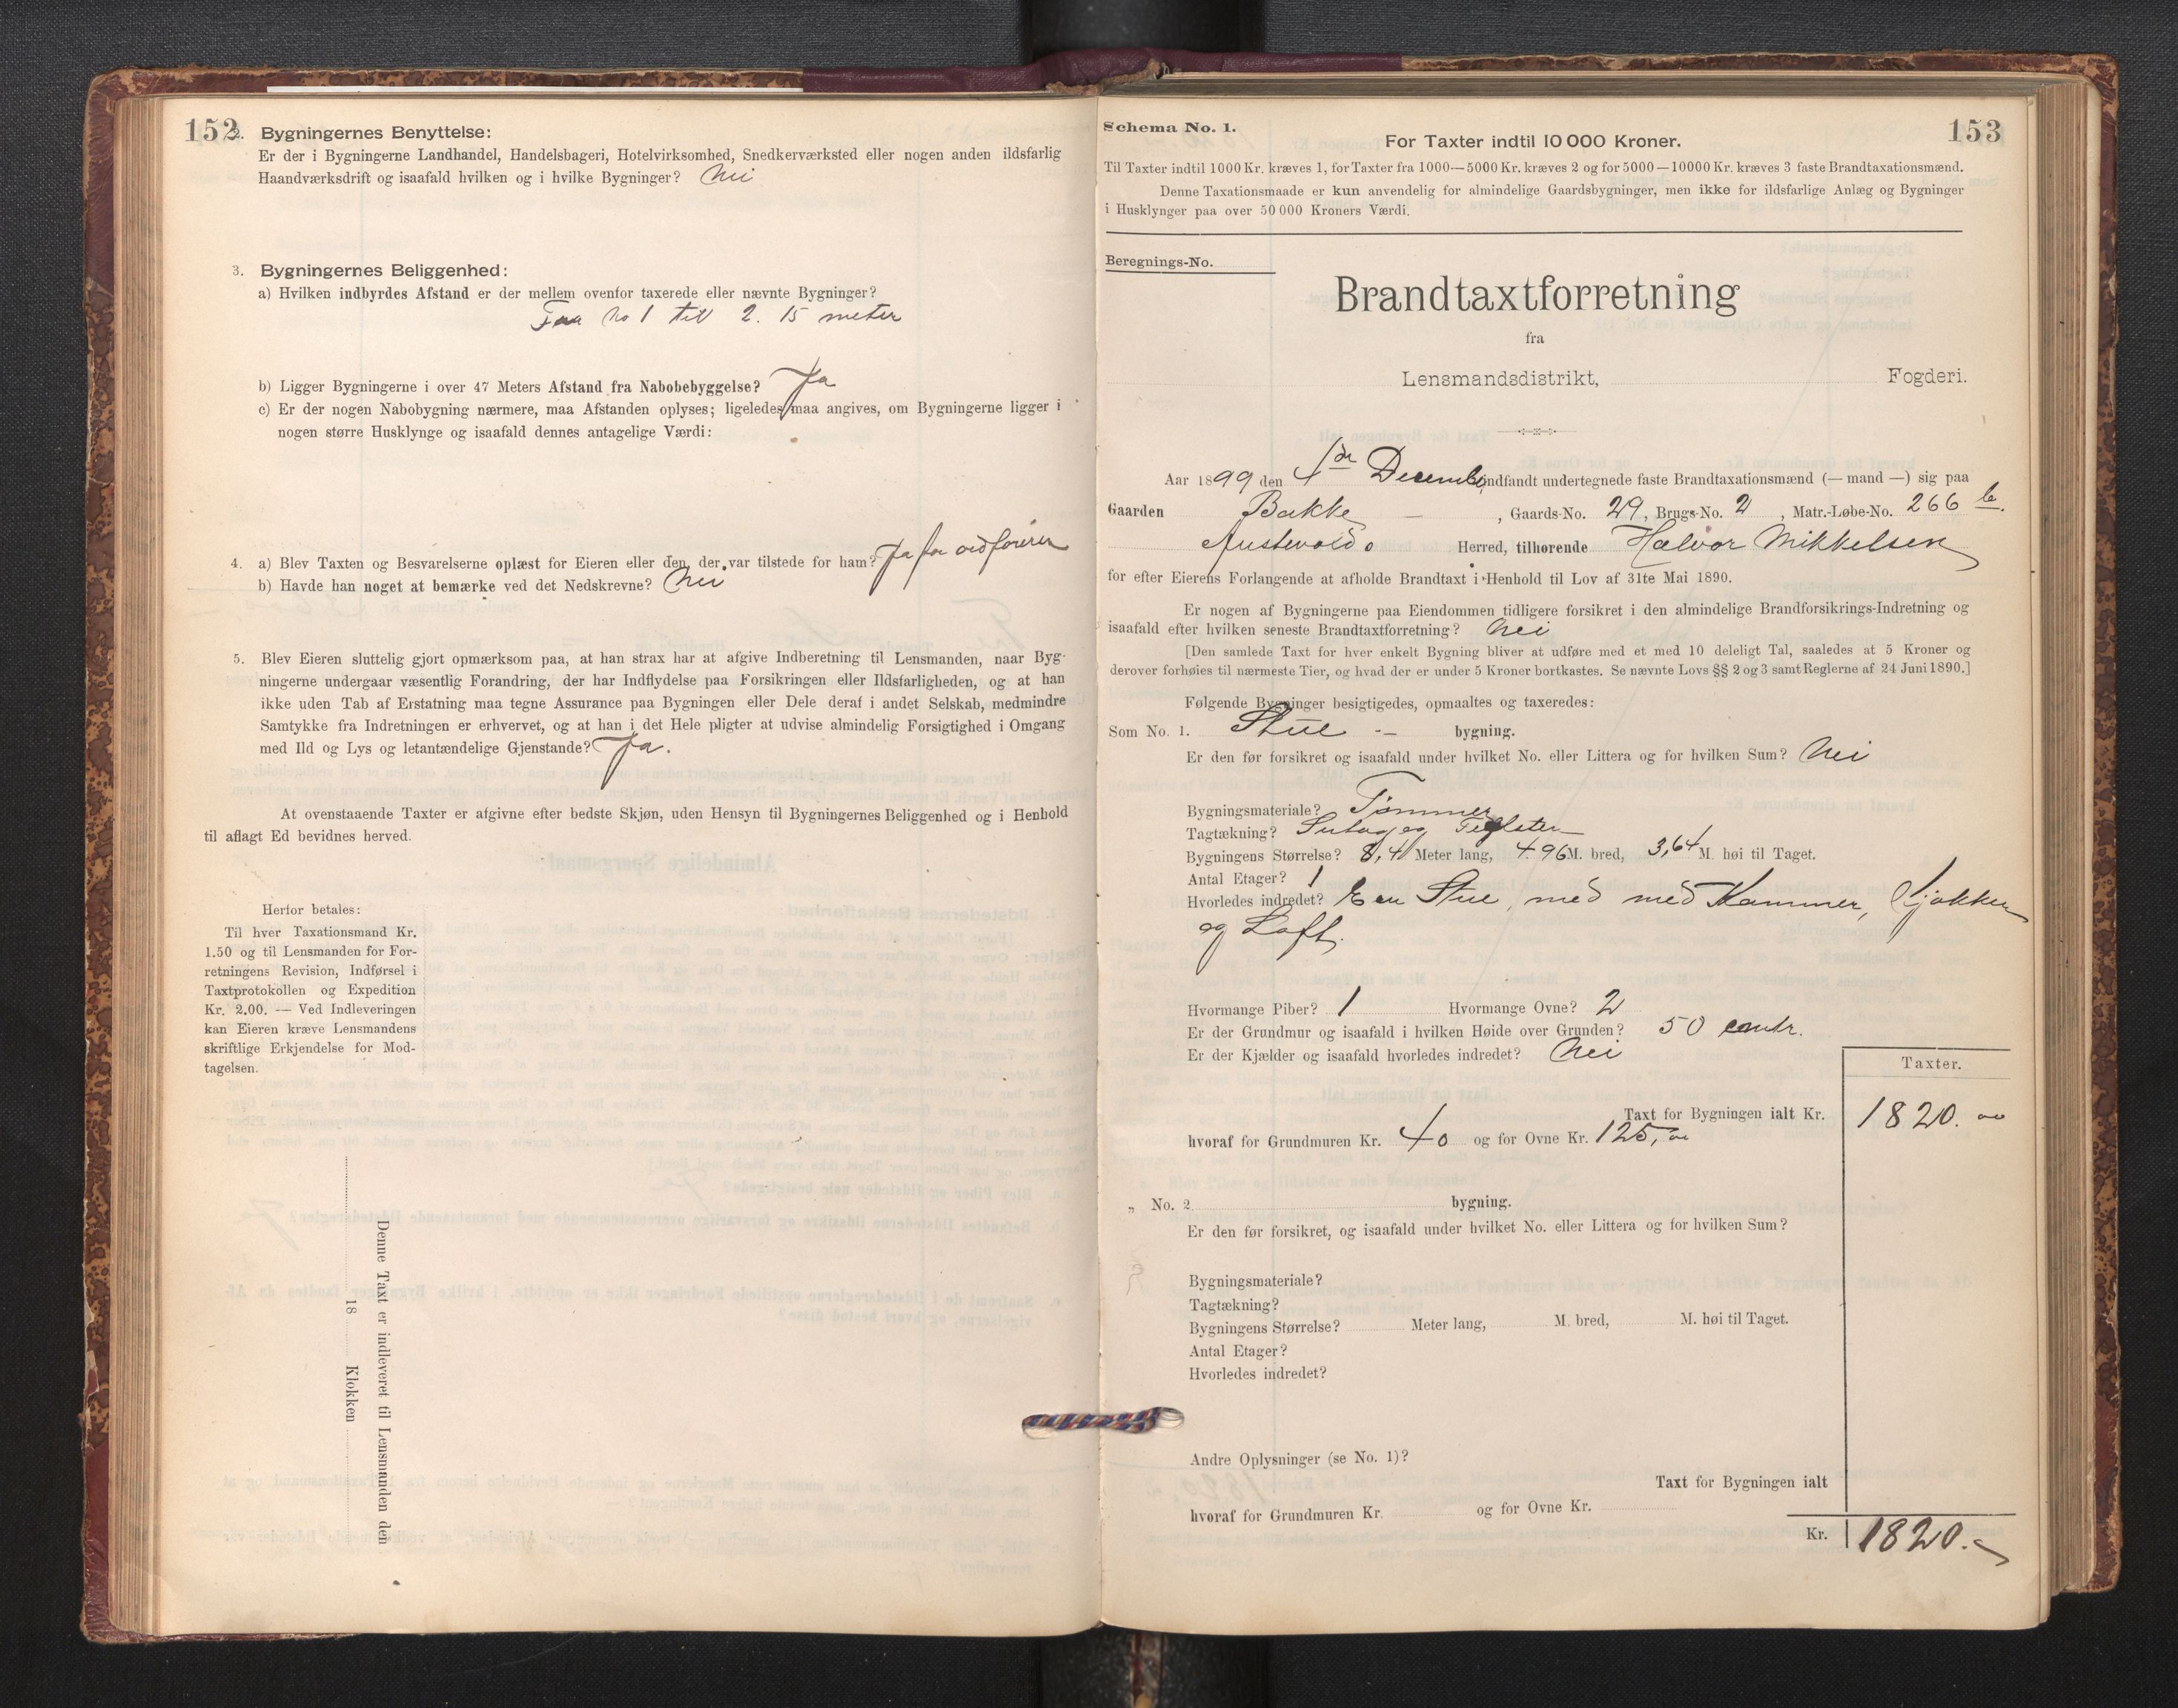 152
2. Bygningernes Benyttelse:
Er der i Bygningerne Landhandel, Handelsbageri, Hotelvirksomhed, Snedkerværksted eller nogen anden ildsfarlig
Haandværksdrift og isaafald hvilken og i hvilke Bygninger? Nei
3. Bygningernes Beliggenhed:
a) Hvilken indbyrdes Afstand er der mellem ovenfor taxerede eller nævnte Bygninger?
Fra No 1 til 2. 15 meter
b) Ligger Bygningerne i over 47 Meters Afstand fra Nabobebyggelse? Ja
c) Er der nogen Nabobygning nærmere, maa Afstanden oplyses; ligeledes maa angives, om Bygningerne ligger i
nogen større Husklynge og isaafald dennes antagelige Værdi:
4. a) Blev Taxten og Besvarelserne oplæst for Eieren eller den, der var tilstede for ham? Ja
b) Havde han noget at bemærke ved det Nedskrevne? Nei
5. Blev Eieren sluttelig gjort opmærksom paa, at han strax har at afgive Indberetning til Lensmanden, naar Byg-
ningerne undergaar væsentlig Forandring, der har Indflydelse paa Forsikringen eller Ildsfarligheden, og at han
ikke uden Tab af Erstatning maa tegne Assurance paa Bygningen eller Dele deraf i andet Selskab, medmindre
Samtykke fra Indretningen er erhvervet, og at han i det Hele pligter at udvise almindelig Forsigtighed i Omgang
med Ild og Lys og letantændelige Gjenstande? Ja.
At ovenstaaende Taxter er afgivne efter bedste Skjøn, uden Hensyn til Bygningernes Beliggenhed og i Henhold
til aflagt Ed bevidnes herved.
Herfor betales:
Til hver Taxationsmand Kr.
1.50 og til Lensmanden for For-
retningens Revision, Indførsel i
Taxtprotokollen og Expedition
Kr. 2.00. — Ved Indleveringen
kan Eieren kræve Lensmandens
skriftlige Erkjendelse for Mod-
tagelsen.
Denne Taxt er indleveret til Lensmanden den
18 Klokken
Schema No. 1.
153
For Taxter indtil 10 000 Kroner.
Til Taxter indtil 1000 Kr. kræves 1, for Taxter fra 1000—5000 Kr. kræves 2 og for 5000—10000 Kr. kræves 3 faste Brandtaxationsmænd.
Denne Taxationsmaade er kun anvendelig for almindelige Gaardsbygninger, men ikke for ildsfarlige Anlæg og Bygninger
i Husklynger paa over 50 000 Kroners Værdi.
Beregnings-No.
Brandtaxtforretning
fra
Lensmandsdistrikt, Fogderi.
Aar 1899 den 1de Decembr indfandt undertegnede faste Brandtaxationsmænd (— mand —) sig paa
Gaarden Bakke – , Gaards-No. 29, Brugs-No. 2 , Matr.-Løbe-No. 266 b.
Austevolds Herred, tilhørende Halvor Mikkelsen
for efter Eierens Forlangende at afholde Brandtaxt i Henhold til Lov af 31te Mai 1890.
Er nogen af Bygningerne paa Eiendommen tidligere forsikret i den almindelige Brandforsikrings-Indretning og
isaafald efter hvilken seneste Brandtaxtforretning? Nei
[Den samlede Taxt for hver enkelt Bygning bliver at udføre med et med 10 deleligt Tal, saaledes at 5 Kroner og
derover forhøies til nærmeste Tier, og hvad der er under 5 Kroner bortkastes. Se nævnte Lovs §§ 2 og 3 samt Reglerne af 24 Juni 1890.]
Følgende Bygninger besigtigedes, opmaaltes og taxeredes:
Som No. 1. Stue – bygning.
Er den før forsikret og isaafald under hvilket No. eller Littera og for hvilken Sum? Nei
Bygningsmateriale? Tømmer
Tagtækning? Sutag og Teglsten
Bygningens Størrelse? 8,4 Meter lang, 4.96 M. bred, 3,64 M. høi til Taget.
Antal Etager? 1
Hvorledes indredet? En Stue, med med Kammer, Kjøkken
og Loft.
Hvormange Piber? 1 Hvormange Ovne? 2
Er der Grundmur og isaafald i hvilken Høide over Grunden? 50 centr.
Er der Kjælder og isaafald hvorledes indredet? Nei
Taxter.
Taxt for Bygningen ialt Kr. 1820. oo
hvoraf for Grundmuren Kr. 40 og for Ovne Kr. 125, oo
„ No. 2 bygning.
Er den før forsikret, og isaafald under hvilket No. eller Littera og for hvilken Sum?
Bygningsmateriale?
Tagtækning?
Bygningens Størrelse? Meter lang, M. bred, M. høi til Taget.
Antal Etager?
Hvorledes indredet?
Andre Oplysninger (se No. 1)?
Taxt for Bygningen ialt
hvoraf for Grundmuren Kr. og for Ovne Kr.
Kr. 1820.–